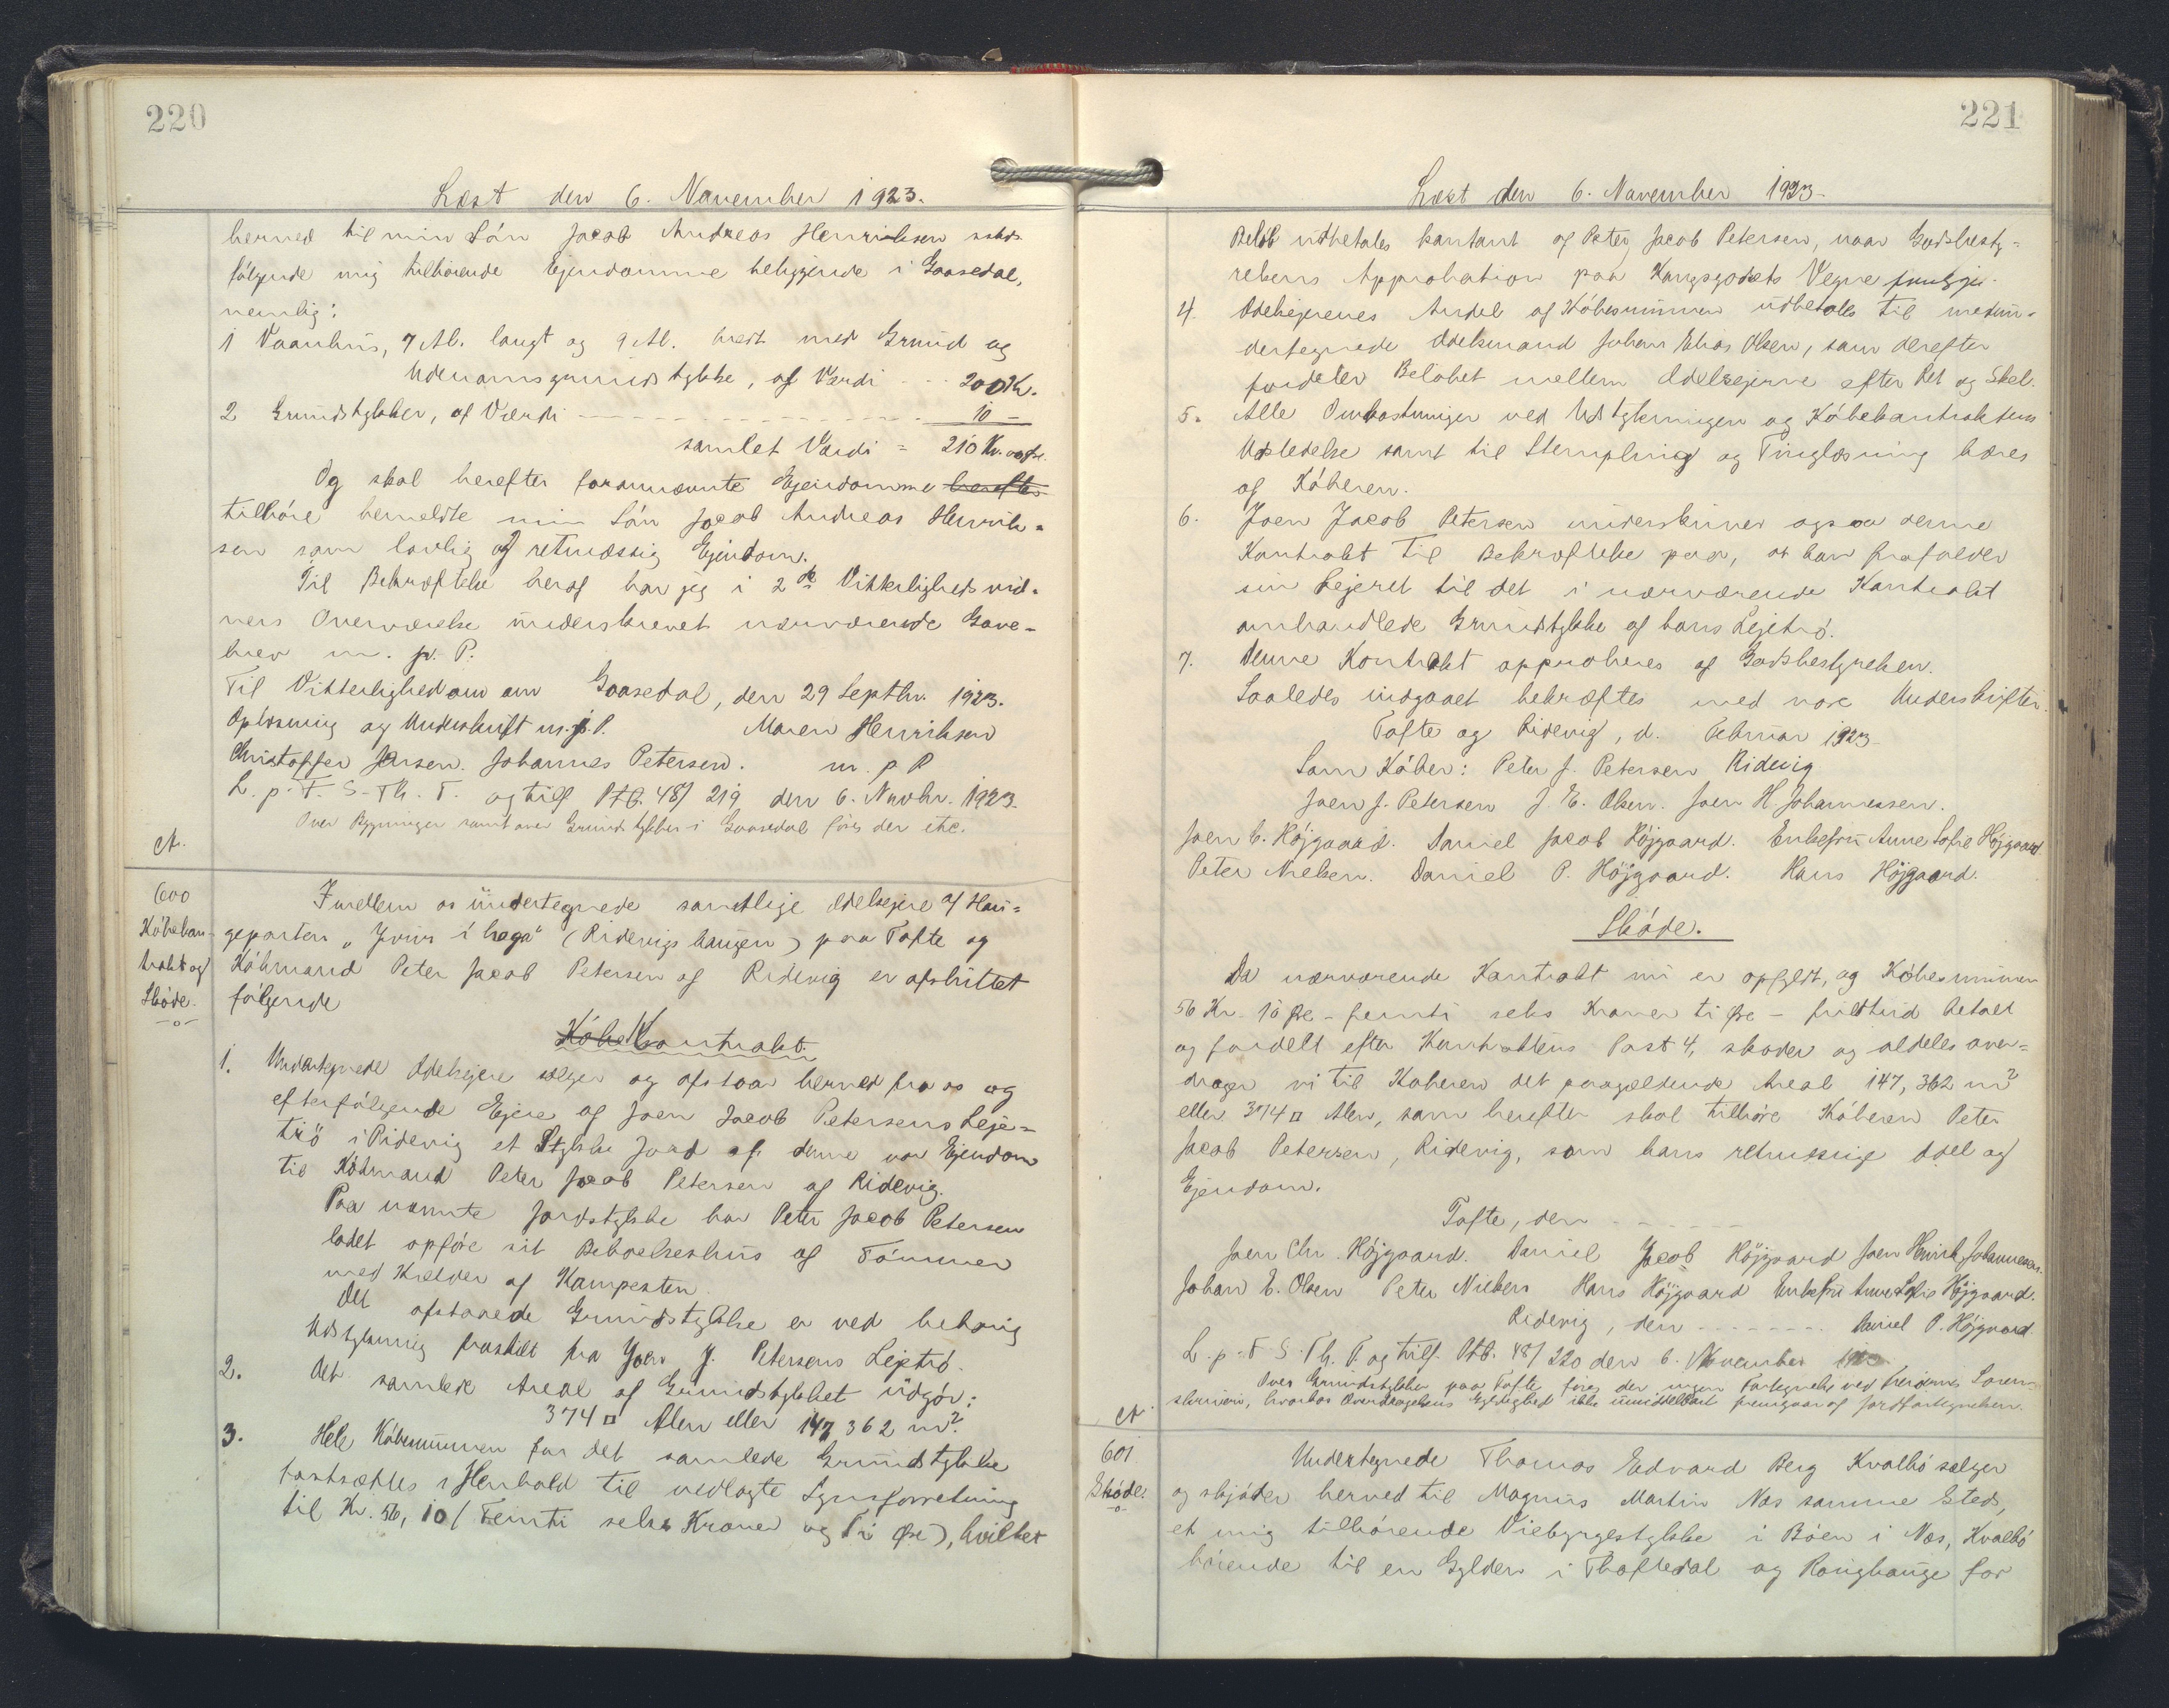 220
Læst den 6. November 1923.
herved til min Sön Jacob Andreas Henriksen
fölgende mig tilhörende Ejendomme beliggende i Gaasedal,
nemlig:
1 Vaanhus, 7 Al. langt og 9 Al. bredt med Grund og
Udenomsgrundstykke, af Værdi - - - 200 Kr.
2 Grundstykker, af Værdi - - - - - - - 10 -
samlet Værdi = 210 Kr.
Og skal herefter forannævnte Ejendomme herefter
tilhöre bemeldte min Sön Jacob Andreas Henrik=
sen som lovlig og retmæssig Ejendom.
Til Bekræftelse heraf har jeg i 2de Vitterligheds vid=
ners Overværelse underskrevet nærværende Gave=
brev m. p. P.
Til Vitterlighed om Gaasedal, den 29 Septbr. 1923.
Oplæsning og Underskrift m. p. P. Maren Henriksen
Christoffer Jensen. Johannes Petersen. m. p P
L. p. F. S. Th. T. og tilf Ptb. 48/ 219 den 6. Novbr. 1923.
Over Bygninger samt over Grundstykker i Gaasedal föres der ikke.
600
Köbekon-
trakt og
Sköde.
-o-
Imellem os undertegnede samtlige Odelsejere af Hau=
geparten " í haga" (Ridevigs haugen) paa Tofte og
Köbmand Peter Jacob Petersen af Ridevig er afsluttet
fölgende
Köbe Kontrakt
1. Undertegnede Odelsejere sælger og afstaar herved fra os og
efterfölgende Ejere af Joen Jacob Petersens Leje=
trö i Ridevig et Stykke Jord af denne vor Ejendom
til Köbmand Peter Jacob Petersen af Ridevig.
Paa nævnte Jordstykke har Peter Jacob Petersen
ladet opföre sit Beboelseshus af Tömmer
med Kælder af Kampesten.
Det afstaaede Grundstykke er ved behörig
Udstykning fraskilt fra Joen J. Petersens Lejetrö.
2. Det samlede Areal af Grundstykket udgör:
374 □ Alen eller 147,362 m².
3. Hele Köbesummen for det samlede Grundstykke
fastsættes i Henhold til vedlagte Synsforretning
til Kr. 56,10 (Femti seks Kroner og Ti Øre), hvilket
221
Læst den 6. November 1923-
Belöb udbetales kontant af Peter Jacob Petersen, naar Godsbesty=
relsens Approbation paa Kongsgodsets Vegne
4. Odelsejerenes Andel af Köbesummen udbetales til medun=
dertegnede Odelsmand Johan Elias Olsen, som derefter
fordeler Belöbet mellem Odelsejerne efter Ret og Skel.
5. Alle Omkostninger ved Udstykningen og Köbekontraktens
Udstedelse samt til Stempling og Tinglæsning bæres
af Köberen.
6. Joen Jacob Petersen underskriver ogsaa denne
Kontrakt til Bekræftelse paa, at han frafalder
sin Lejeret til det i nærværende Kontrakt
omhandlede Grundstykke af hans Lejetrö.
7. Denne Kontrakt approberes af Godsbestyrelsen.
Saaledes indgaaet bekræftes med vore Underskrifter.
Tofte og Ridevig, d. Februar 1923-
Som Köber: Peter J. Petersen Ridevig
Joen J. Petersen J. E. Olsen. Joen H Johannessen.
Joen C. Höjgaard. Daniel Jacob Höjgaard. Enkefru Anne Sofie Höjgaard
Peter Nielsen. Daniel P. Höjgaard. Hans Höjgaard.
Sköde.
Da nærværende Kontrakt nu er opfyldt, og Köbesummen
56 Kr. 10 Øre - femti seks Kroner ti Øre - fuldtud betalt
og fordelt efter Kontraktens Post 4, skøder og aldeles over=
drager vi til Köberen det paagældende Areal 147,362 m²
eller 374 □ Alen, som herefter skal tilhöre Köberen Peter
Jacob Petersen, Ridevig, som hans retmæssige Odel og
Ejendom.
Tofte, den - - - - - -
Joen Chr. Höjgaard. Daniel Jacob Höjgaard Joen Henrik Johannessen.
Johan E. Olsen Peter Nielsen Hans Höjgaard Enkefru Anne Sofie Höjgaard.
Ridevig, den - - - - - - Daniel P. Höjgaard
L. p. F. S. Th. T. og tilf. Ptb. 48/ 220 den 6. November 1923
Over Grundstykker paa Tofte föres der ingen Fortegnelse ved herværende Soren-
skriveri, hvorfor Overdragelsens Gyldighed ikke umiddelbart fremgaar af Jordfortegnelsen.
601
Sköde.
-o-
Undertegnede Thomas Edvard Berg Kvalbö sælger
og skjöder herved til Magnus Martin Næs samme Steds,
et mig tilhörende Viebyrgestykke i Böen i Næs, Kvalbö
hörende til en Gylden i Thoftedal og for